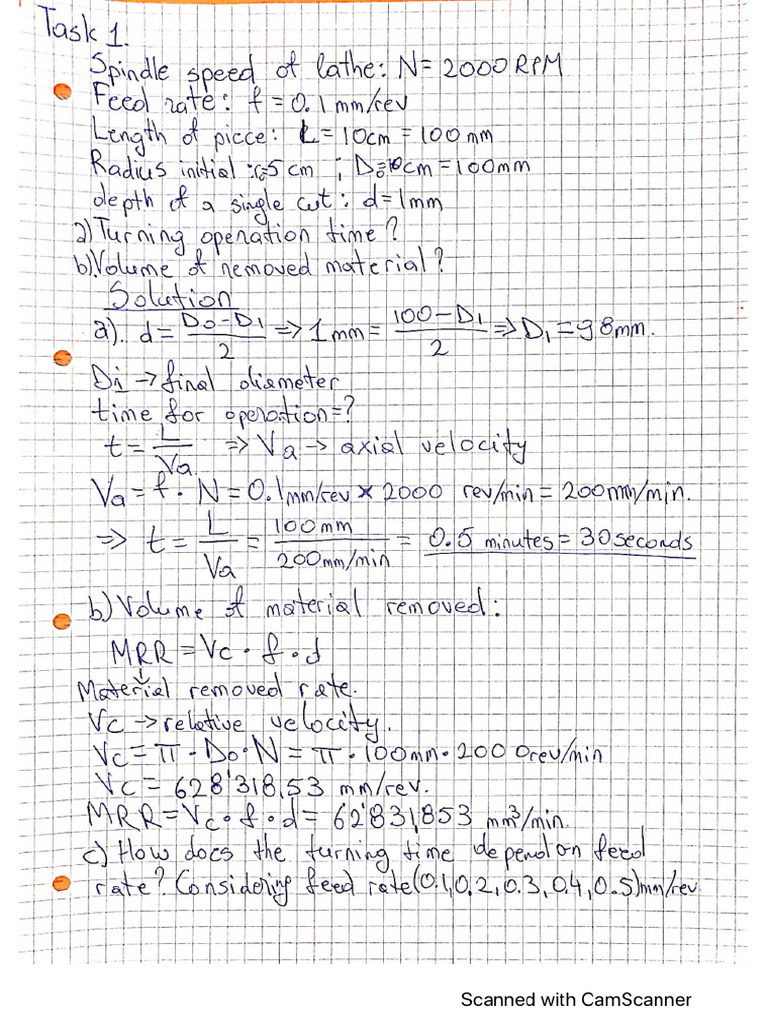 Task 1.
Spindle speed of lathe: N= 2000 RPM
Feed rate: f = 0.1 mm/rev
Length of picce: L = 10cm = 100 mm
Radius initial :r₀=5 cm ; D₀=10cm = 100mm
depth of a single cut: d=1mm
a) Turning operation time?
b). Volume of removed material?
Solution
a). d = (D₀-D₁)/2 => 1 mm = (100-D₁)/2 => D₁ = 98mm.
Di → final diameter
time for operation=?
t = L/Va => Va → axial velocity
Va = f · N = 0.1mm/rev × 2000 rev/min = 200mm/min.
=> t = L/Va = 100mm/200mm/min = 0.5 minutes = 30 seconds
b) Volume of material removed:
MRR = Vc · f · d
Material removed rate.
Vc → relative velocity.
Vc = π · D₀ · N = π · 100mm · 2000rev/min
Vc = 628'318,53 mm/rev.
MRR = Vc · f · d = 62'831,853 mm³/min.
c) How does the turning time depend on feed
rate? Considering feed rate (0.1, 0.2, 0.3, 0.4, 0.5) mm/rev.
Scanned with CamScanner